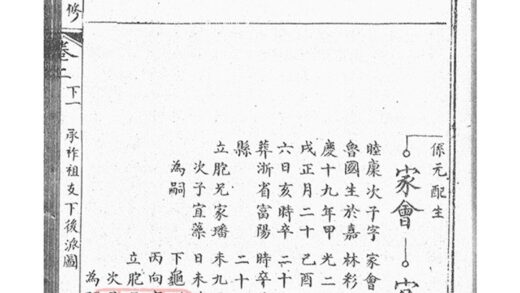 係元配生
家會
睦康次子字
魯國生於嘉
慶十九年甲
戌正月二十
六日亥時卒
葬浙省富陽
縣
立胞兄家璠
次子宜藻
為嗣
家會
林彩
光二
己酉
二十
時卒
二十
未九
日未
下龜
丙向
立胞
次
為
修
卷二
下一
承祚祖支下後派圖